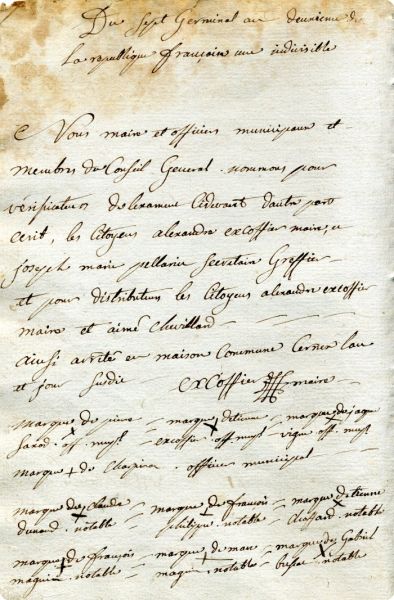 Du Sept Germinal an deuxieme de
La republique françoise une indivisible
Nous maire et officiers municipaux et
membres du Conseil General nommons pour
vérificateurs de l'examen cidevant d'autre part
écrit, les Citoyens alexandre excoffier maire, et
Joseph marie pellarin Secretaire Greffier
et pour distributeurs les Citoyens alexandre excoffier
maire et aimé Chevilland
ainsi arrêté en maison Commune Cerner l'an
et jour susdit excoffier maire
marque de pierre — marque d'etienne — marque de jaque
off. mupl — excoffier off. mupl — vigne off. mupl
marque de officier municipal
marque de claude — marque de françois — marque d'etienne
dunand notable — philippe notable — notable
marque de françois — marque de marc — marque de Gabriel
magnin notable — magnin notable — notable